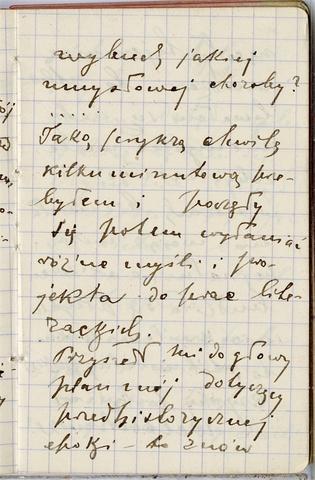 wybuch jakiej
umysłowej choroby?
.....
Taką przykrą chwilę
kilkuminutową prze-
byłem i poczęły
się potem wyłaniać
różne myśli i pro-
jekta do prac lite-
rackich.
Przyszedł mi do głowy
plan mój dotyczący
przedhistorycznej
epoki – to znów